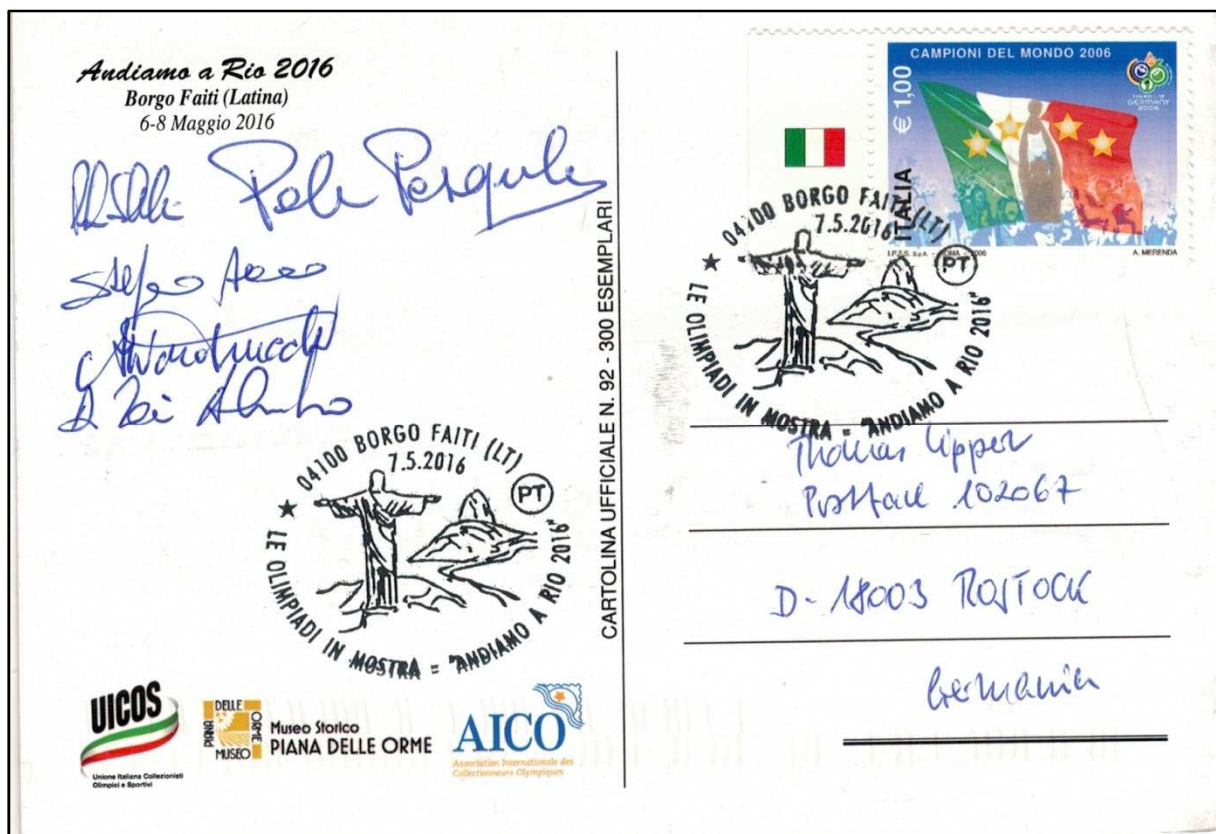 Andiamo a Rio 2016
Borgo Faiti (Latina)
6-8 Maggio 2016
04100 BORGO FAITI (LT)
7.5.2016
PT
★ LE OLIMPIADI IN MOSTRA = "ANDIAMO A RIO 2016"
UICOS
Unione Italiana Collezionisti
Olimpici e Sportivi
PIANA DELLE ORME MUSEO
Museo Storico
PIANA DELLE ORME
AICO
Association Internationale des
Collectionneurs Olympiques
CARTOLINA UFFICIALE N. 92 - 300 ESEMPLARI
CAMPIONI DEL MONDO 2006
€ 1,00
ITALIA
FIFA WORLD CUP
GERMANY
2006
I.P.Z.S. S.p.A. - ROMA - 2006
A. MERENDA
04100 BORGO FAITI (LT)
7.5.2016
PT
★ LE OLIMPIADI IN MOSTRA = "ANDIAMO A RIO 2016"
Thomas Lipper
Postfach 102067
D-18003 ROSTOCK
Germania